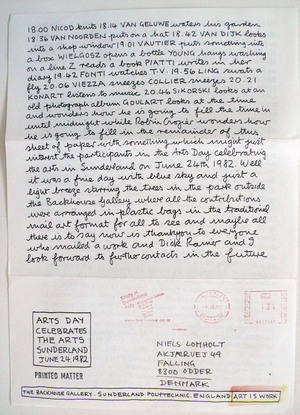 18.00 NICOD knits 18.14 VAN GELUWE waters his garden
18.36 VAN NOORDEN puts on a hat 18.42 VAN DIJK looks
into a shop window 19.01 VAUTIER puts something into
a box WIELGOSZ opens a bottle YOUNG hangs washing
on a line reads a book PIATTI writes in her
diary 19.42 FONTI watches T.V. 19.56 LING swats a
fly 20.06 VIEZZA sneezes COLLIER sneezes 20.21
KONART listens to music 20.46 SIKORSKI looks at an
old photograph album GOULART looks at the time
and wonders how he is going to fill the time in
until midnight while Robin Crozier wonders how
he is going to fill in the remainder of this
sheet of paper with something which might just
interest the participants in the Arts Day celebrating
the arts in Sunderland on June 24th 1982. Well
it was a fine day with blue sky and just a
light breeze stirring the trees in the park outside
the Backhouse Gallery where all the contributions
were arranged in plastic bags in the traditional
mail art format for all to see and maybe all
there is to say now is thankyou to everyone
who mailed a work and Dick Ranier and I
look forward to further contacts in the future
ARTS DAY
CELEBRATES
THE ARTS
SUNDERLAND
JUNE 24, 1982
PRINTED MATTER
NIELS LOMHOLT
AKJÆRVEJ 49
FALLING
8300 ODDER
DENMARK
THE BACKHOUSE GALLERY, SUNDERLAND POLYTECHNIC, ENGLAND ART IS WORK